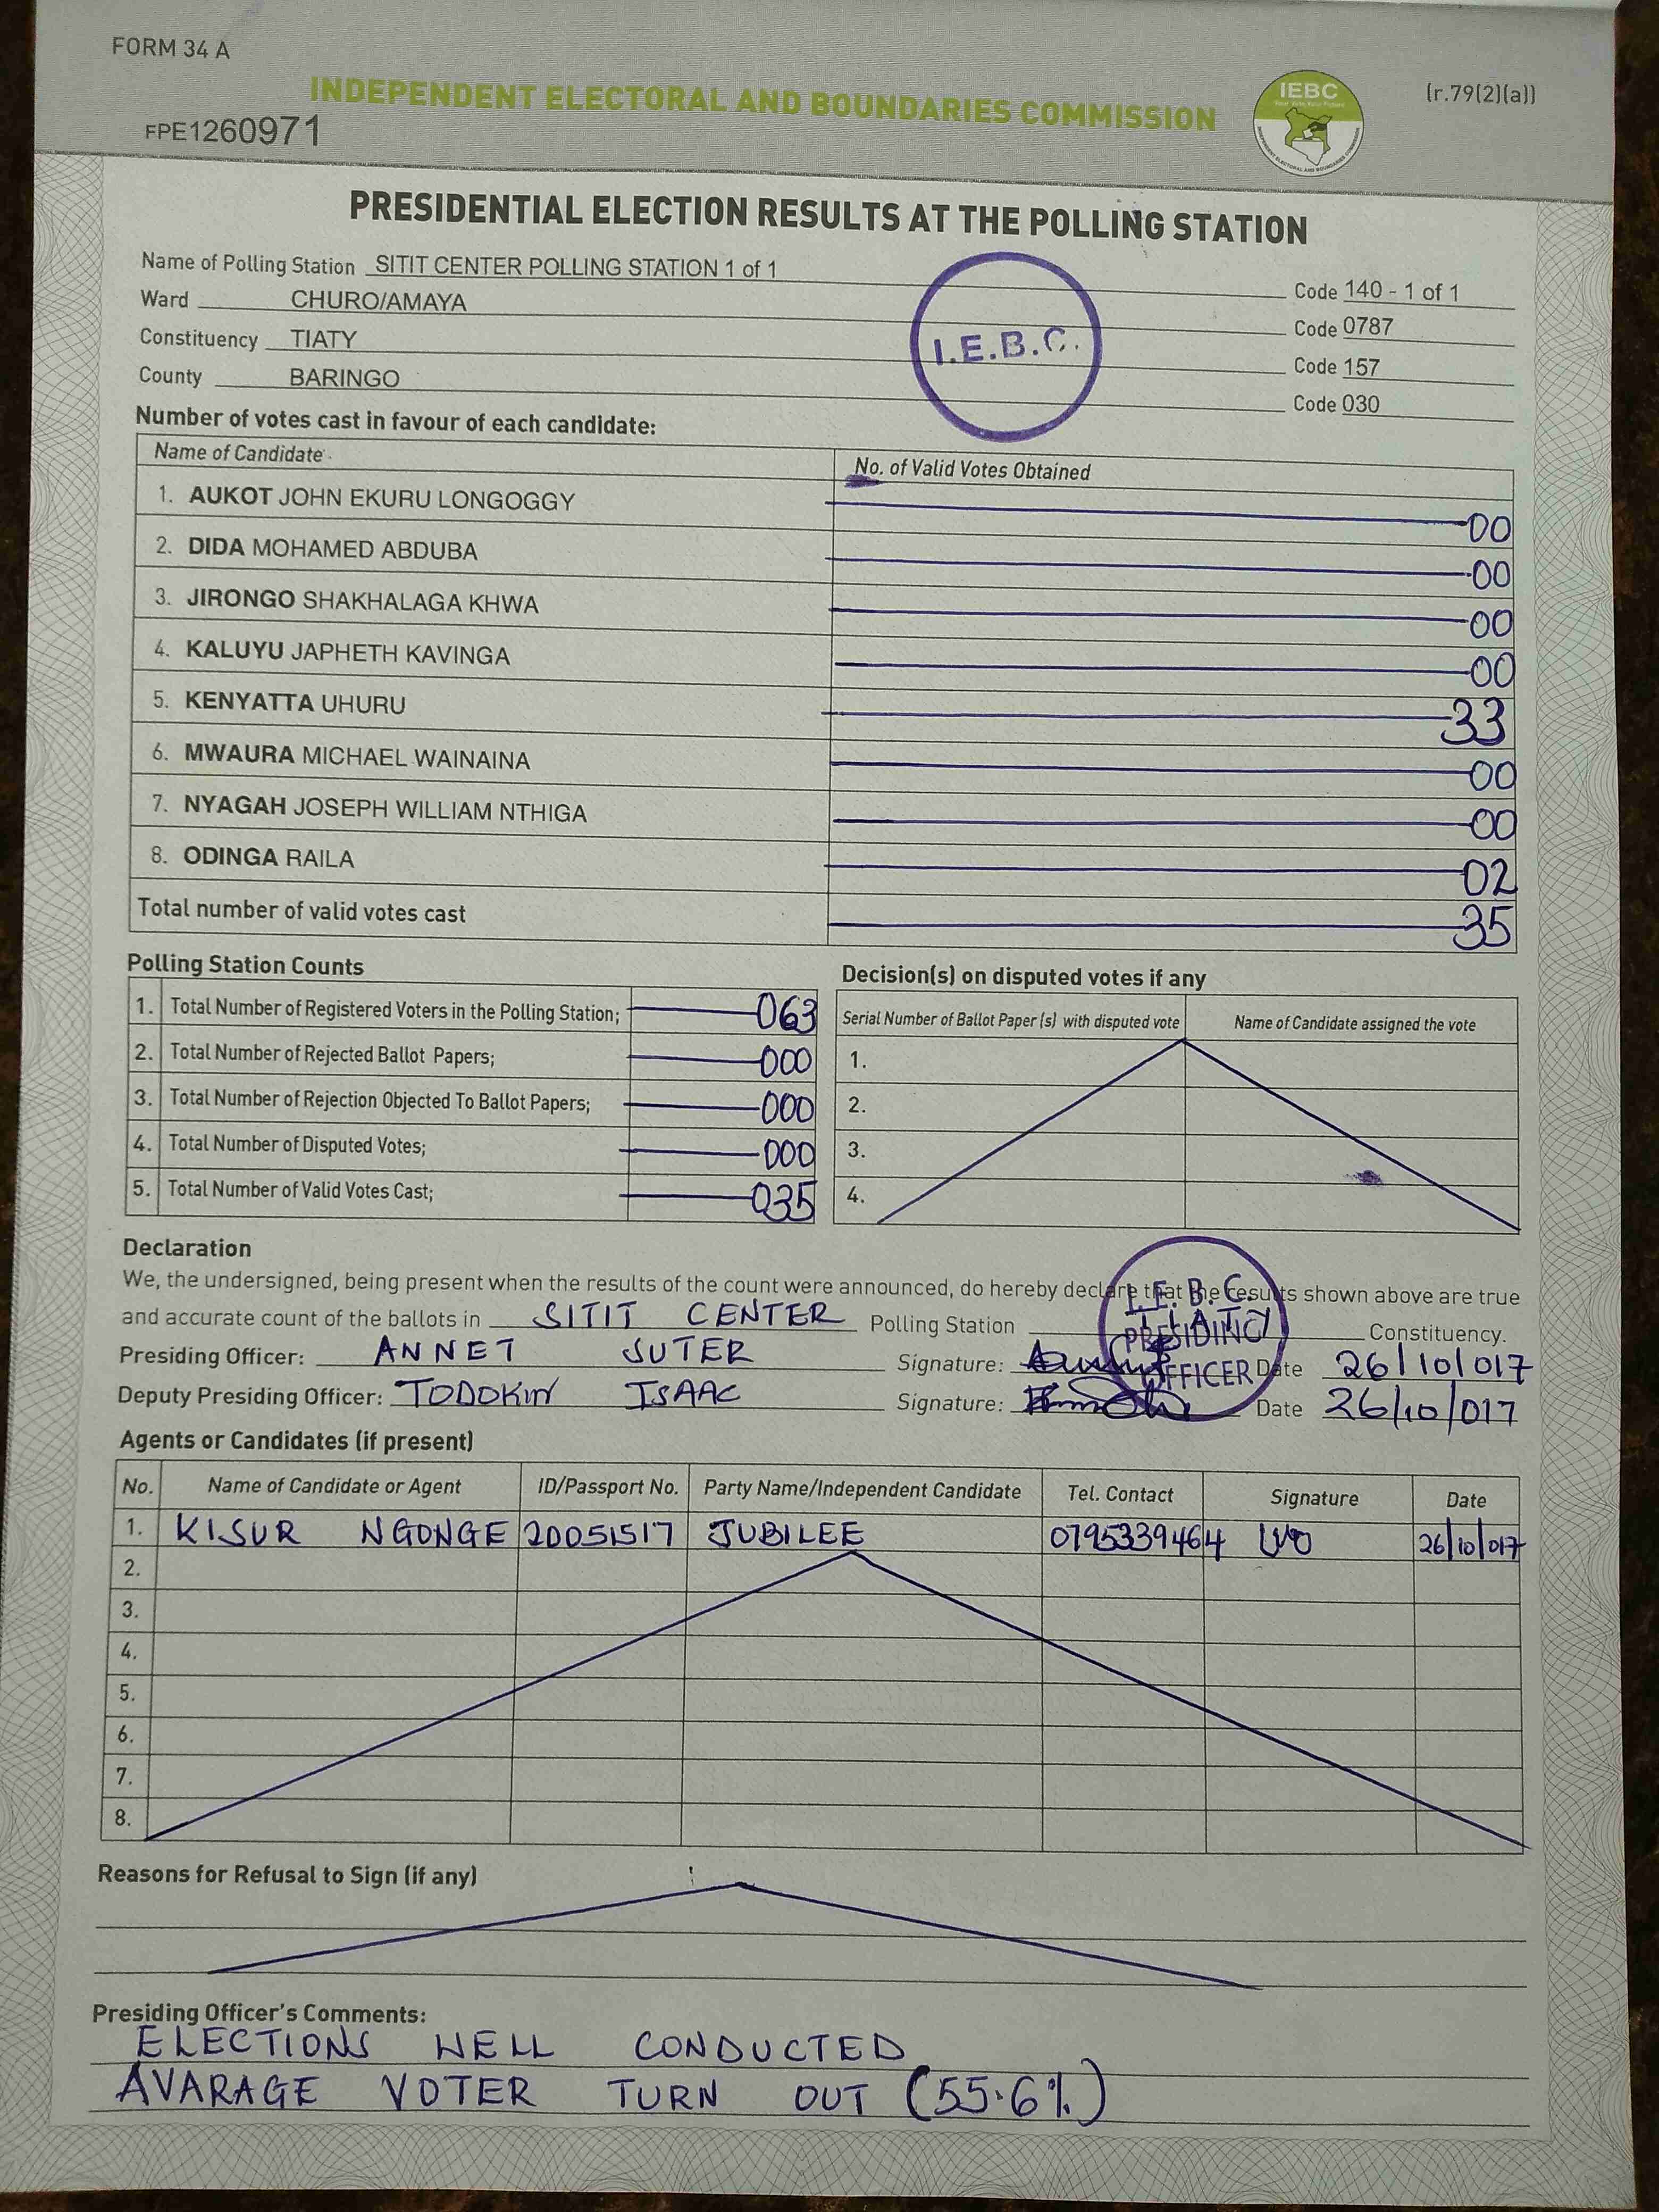 FORM 34 A
INDEPENDENT ELECTORAL AND BOUNDARIES COMMISSION
IEBC
(r.79(2)(a))
FPE1260971
PRESIDENTIAL ELECTION RESULTS AT THE POLLING STATION
Name of Polling Station SITIT CENTER POLLING STATION 1 of 1 Code 140 - 1 of 1
Ward CHURO/AMAYA Code 0787
Constituency TIATY Code 157
County BARINGO Code 030
I.E.B.C.
Number of votes cast in favour of each candidate:
Name of Candidate No. of Valid Votes Obtained
1. AUKOT JOHN EKURU LONGOGGY 00
2. DIDA MOHAMED ABDUBA 00
3. JIRONGO SHAKHALAGA KHWA 00
4. KALUYU JAPHETH KAVINGA 00
5. KENYATTA UHURU 33
6. MWAURA MICHAEL WAINAINA 00
7. NYAGAH JOSEPH WILLIAM NTHIGA 00
8. ODINGA RAILA 02
Total number of valid votes cast 35
Polling Station Counts
1. Total Number of Registered Voters in the Polling Station; 063
2. Total Number of Rejected Ballot Papers; 000
3. Total Number of Rejection Objected To Ballot Papers; 000
4. Total Number of Disputed Votes; 000
5. Total Number of Valid Votes Cast; 035
Decision(s) on disputed votes if any
Serial Number of Ballot Paper (s) with disputed vote Name of Candidate assigned the vote
1.
2.
3.
4.
Declaration
We, the undersigned, being present when the results of the count were announced, do hereby declare that the results shown above are true
and accurate count of the ballots in SITIT CENTER Polling Station Constituency.
I.E.B.C.
TIATY
PRESIDING
OFFICER
Presiding Officer: ANNET SUTER Signature: Date 26/10/017
Deputy Presiding Officer: TODOKIN ISAAC Signature: Date 26/10/017
Agents or Candidates (if present)
No. Name of Candidate or Agent ID/Passport No. Party Name/Independent Candidate Tel. Contact Signature Date
1. KISUR NGONGE 20051517 JUBILEE 0795339464 26/10/017
2.
3.
4.
5.
6.
7.
8.
Reasons for Refusal to Sign (if any)
Presiding Officer's Comments:
ELECTIONS WELL CONDUCTED
AVARAGE VOTER TURN OUT (55.6%)